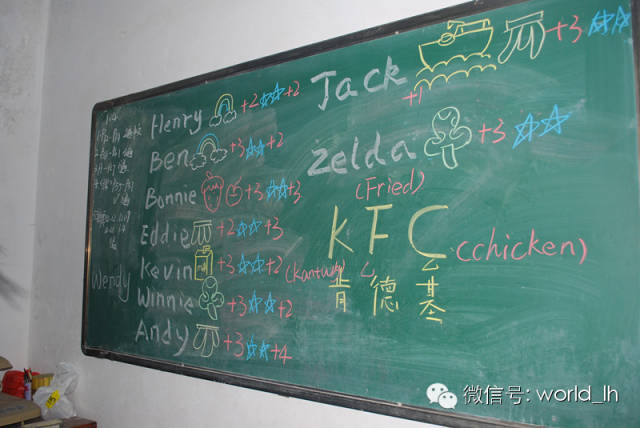 Jack +3
+1
Henry +2 +2
Ben +3 +2
Zelda +3
Bonnie +3 +3
(Fried)
Eddie +2 +3
KFC (chicken)
Kevin +3 +2
肯德基
Wendy
Winnie +3 +2
Andy +3 +4
微信号: world_lh